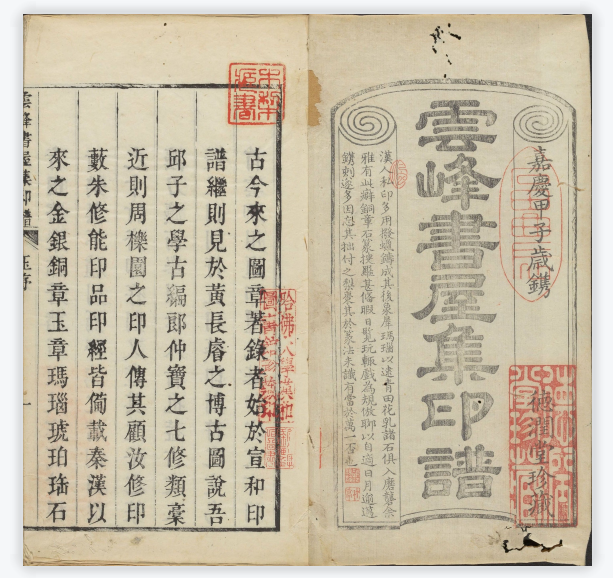 嘉慶甲子歲鐫
德潤堂珍藏
雲峰書屋集印譜
漢人私印多用撥蠟鑄成其後象犀瑪瑙以逮青田花乳諸石俱入磨礱余
雅有此癖銅章石篆搜羅甚偹暇日玩輒戲為規倣聊以自適日月遄邁
鐫剩遂多因忘其拙付之梨棗其於篆法未識有當於萬一否也
古今來之圖章著錄者始於宣和印
譜繼則見於黄長睿之博古圖說吾
邱子之學古編郎仲寳之七修類稾
近則周櫟園之印人傳其顧汝修印
藪朱修能印品印經皆偹載秦漢以
來之金銀銅章玉章瑪瑙琥珀石
雲峰書屋集印譜
一
哈佛大學漢和
圖書館珍藏印